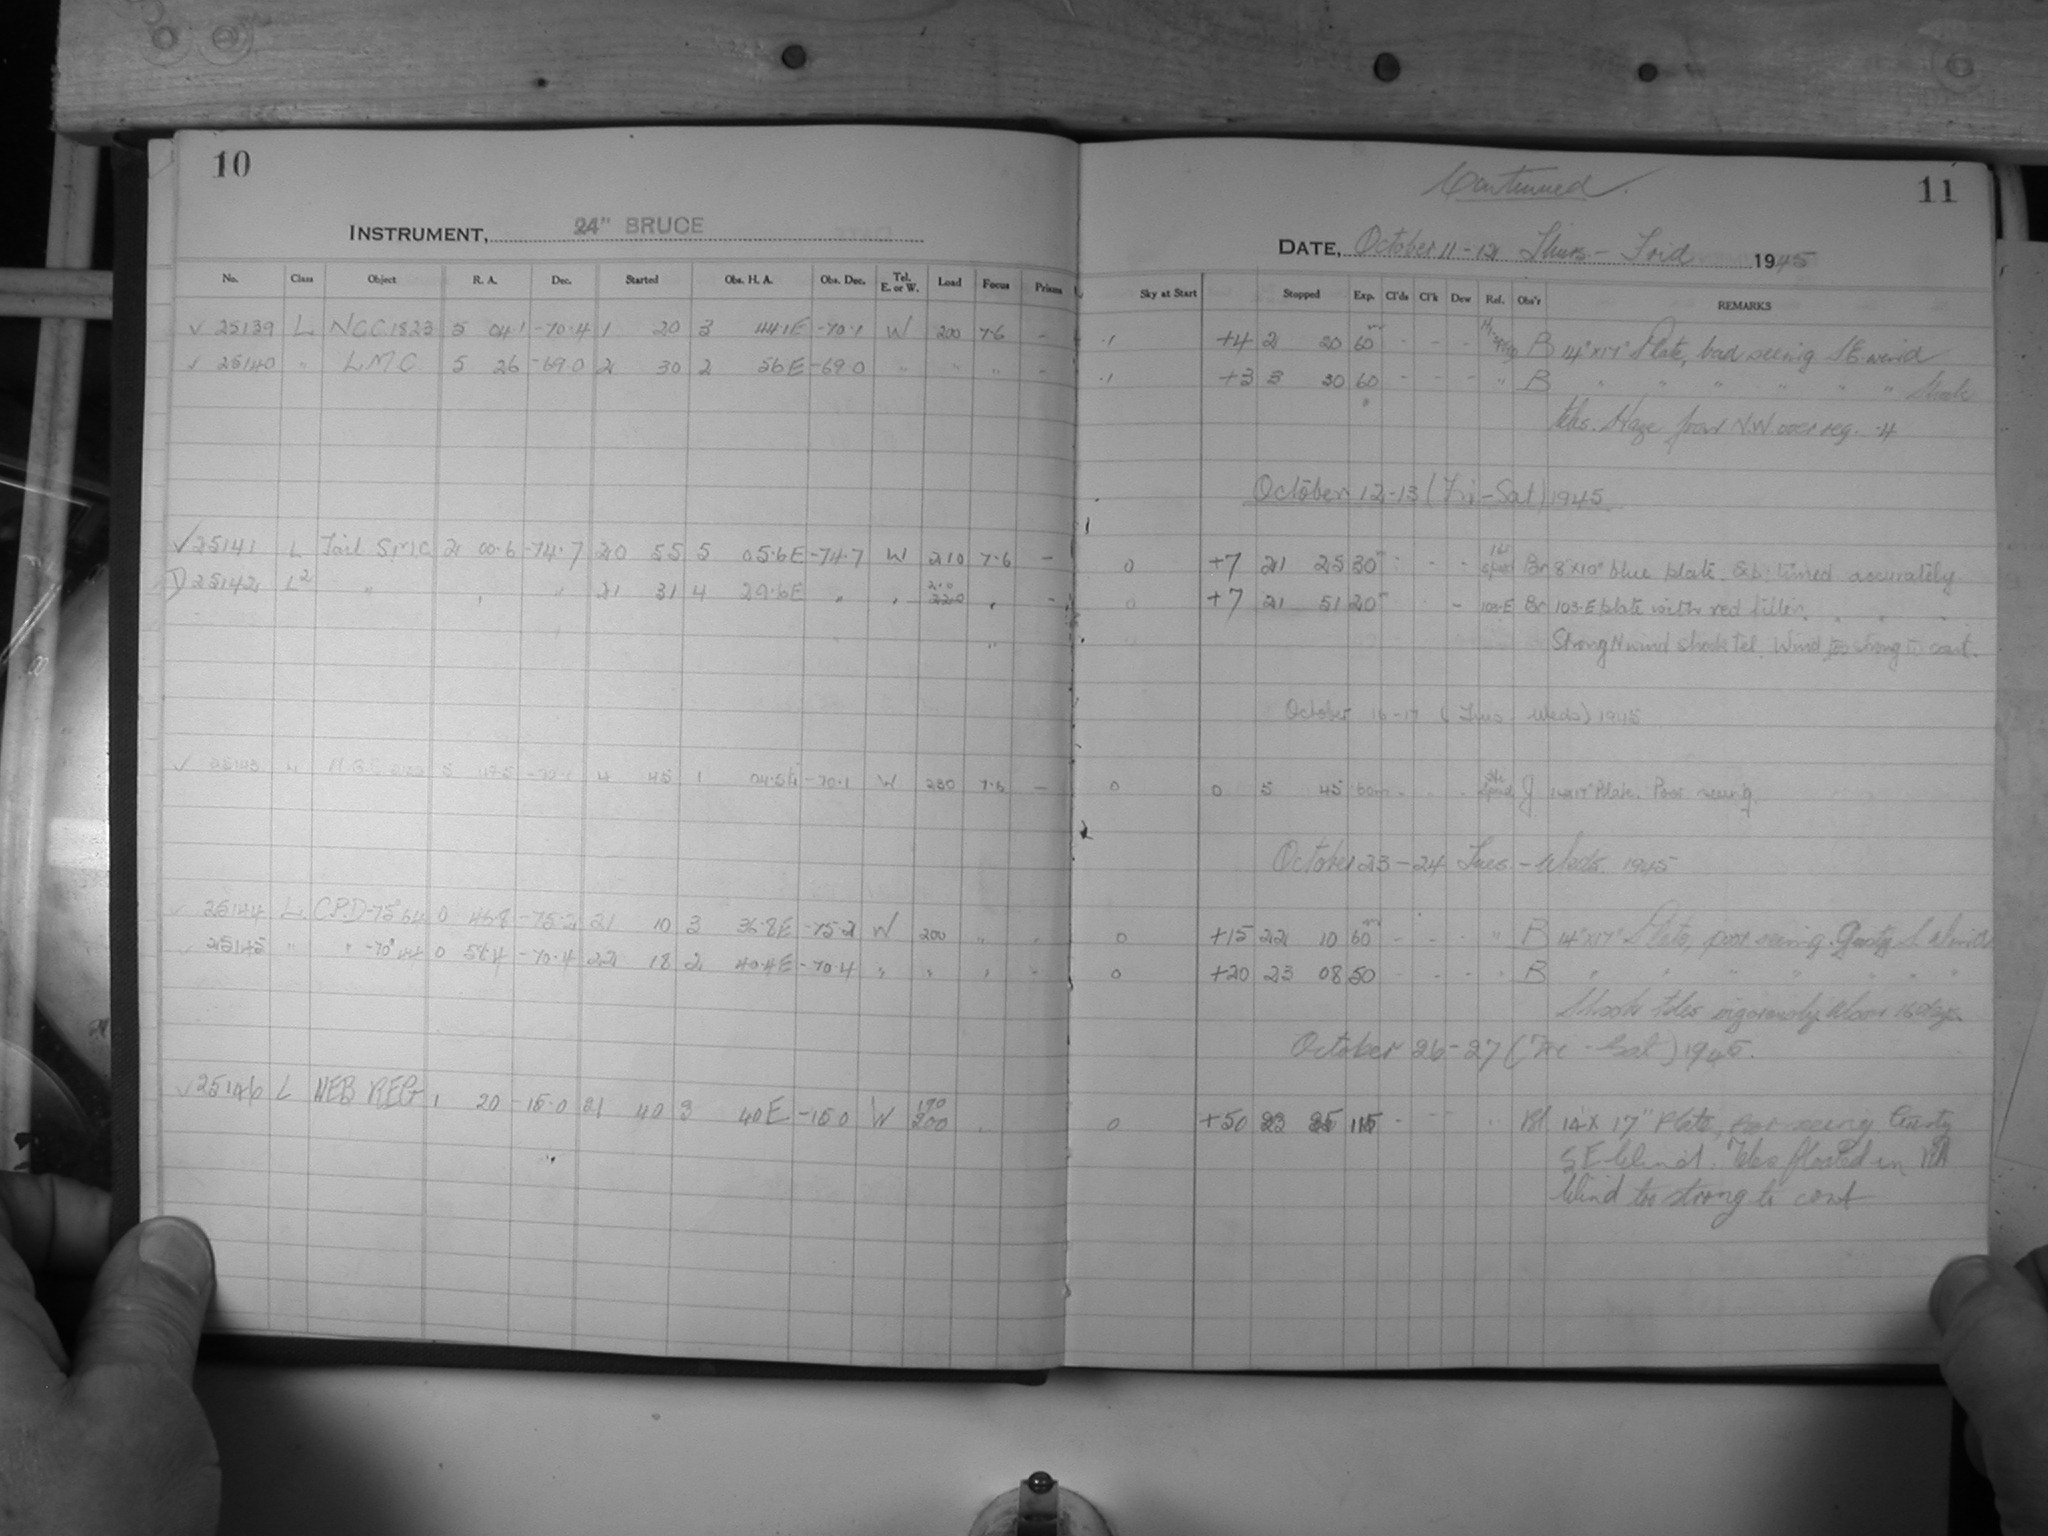 10
INSTRUMENT, 24" BRUCE
No. Class Object R. A. Dec. Started Obs. H. A. Obs. Dec. Tel. E. or W. Load Focus Prisms
√ 25139 L NGC 1823 5 04.1 -70.4 1 20 3 44.1E -70.1 W 200 7.6 -
√ 25140 " L.M.C. 5 26 -69.0 2 30 2 56E -69.0 " " " -
√ 25141 L Tail S.M.C. 2 00.6 -74.7 20 55 5 05.6E -74.7 W 210 7.6 -
25142 L2 " " " 21 31 4 29.6E " " 210 220 " -
√ 25143 L 5 -70.1 4 45 1 04.5E -70.1 W 230 7.6 -
25144 L C.P.D -75° 64 0 46.8 -75.2 21 10 3 36.8E -75.2 W 200 " "
25145 " " -70° 44 0 58.4 -70.4 22 18 2 40.4E -70.4 " " " "
√ 25146 L NEB REG 1 20 -15.0 21 40 3 40E -15.0 W 190 200 "
Continued
11
DATE, October 11-12 Thurs - Frid 1945
Sky at Start Stopped Exp. Cl'ds Cl'k Dew Ref. Obs'r REMARKS
.1 +4 2 20 60m - - - B 14"x17" Plate, bad seeing S.E. wind
.1 +3 3 30 60 - - - " B " " " " " " Shook
teles. Haze from N.W over reg. .4
October 12-13 (Fri-Sat) 1945
0 +7 21 25 30m - - Br 8"x10" blue plate Exp. timed accurately
0 +7 21 51 20m - 103-E Br 103-E plate with red filter. " "
Strong N wind shook tel. Wind too strong to cont.
October 16-17 (Tues - Weds) 1945
0 0 5 45 60m - - - J 14x17" Plate. Poor seeing.
October 23-24 Tues. - Weds. 1945
0 +15 22 10 60m - - - " B 14"x17" Plate, poor seeing. Gusty S. Wind
0 +20 23 08 50 - - - " B " " " " " " "
Shook teles vigorously. Moon 18 days.
October 26-27 (Fri - Sat) 1945.
0 +50 23 35 115 - - - " Bl 14 x 17" Plate, poor seeing Gusty
S E Wind. Teles floated in RA
Wind too strong to cont